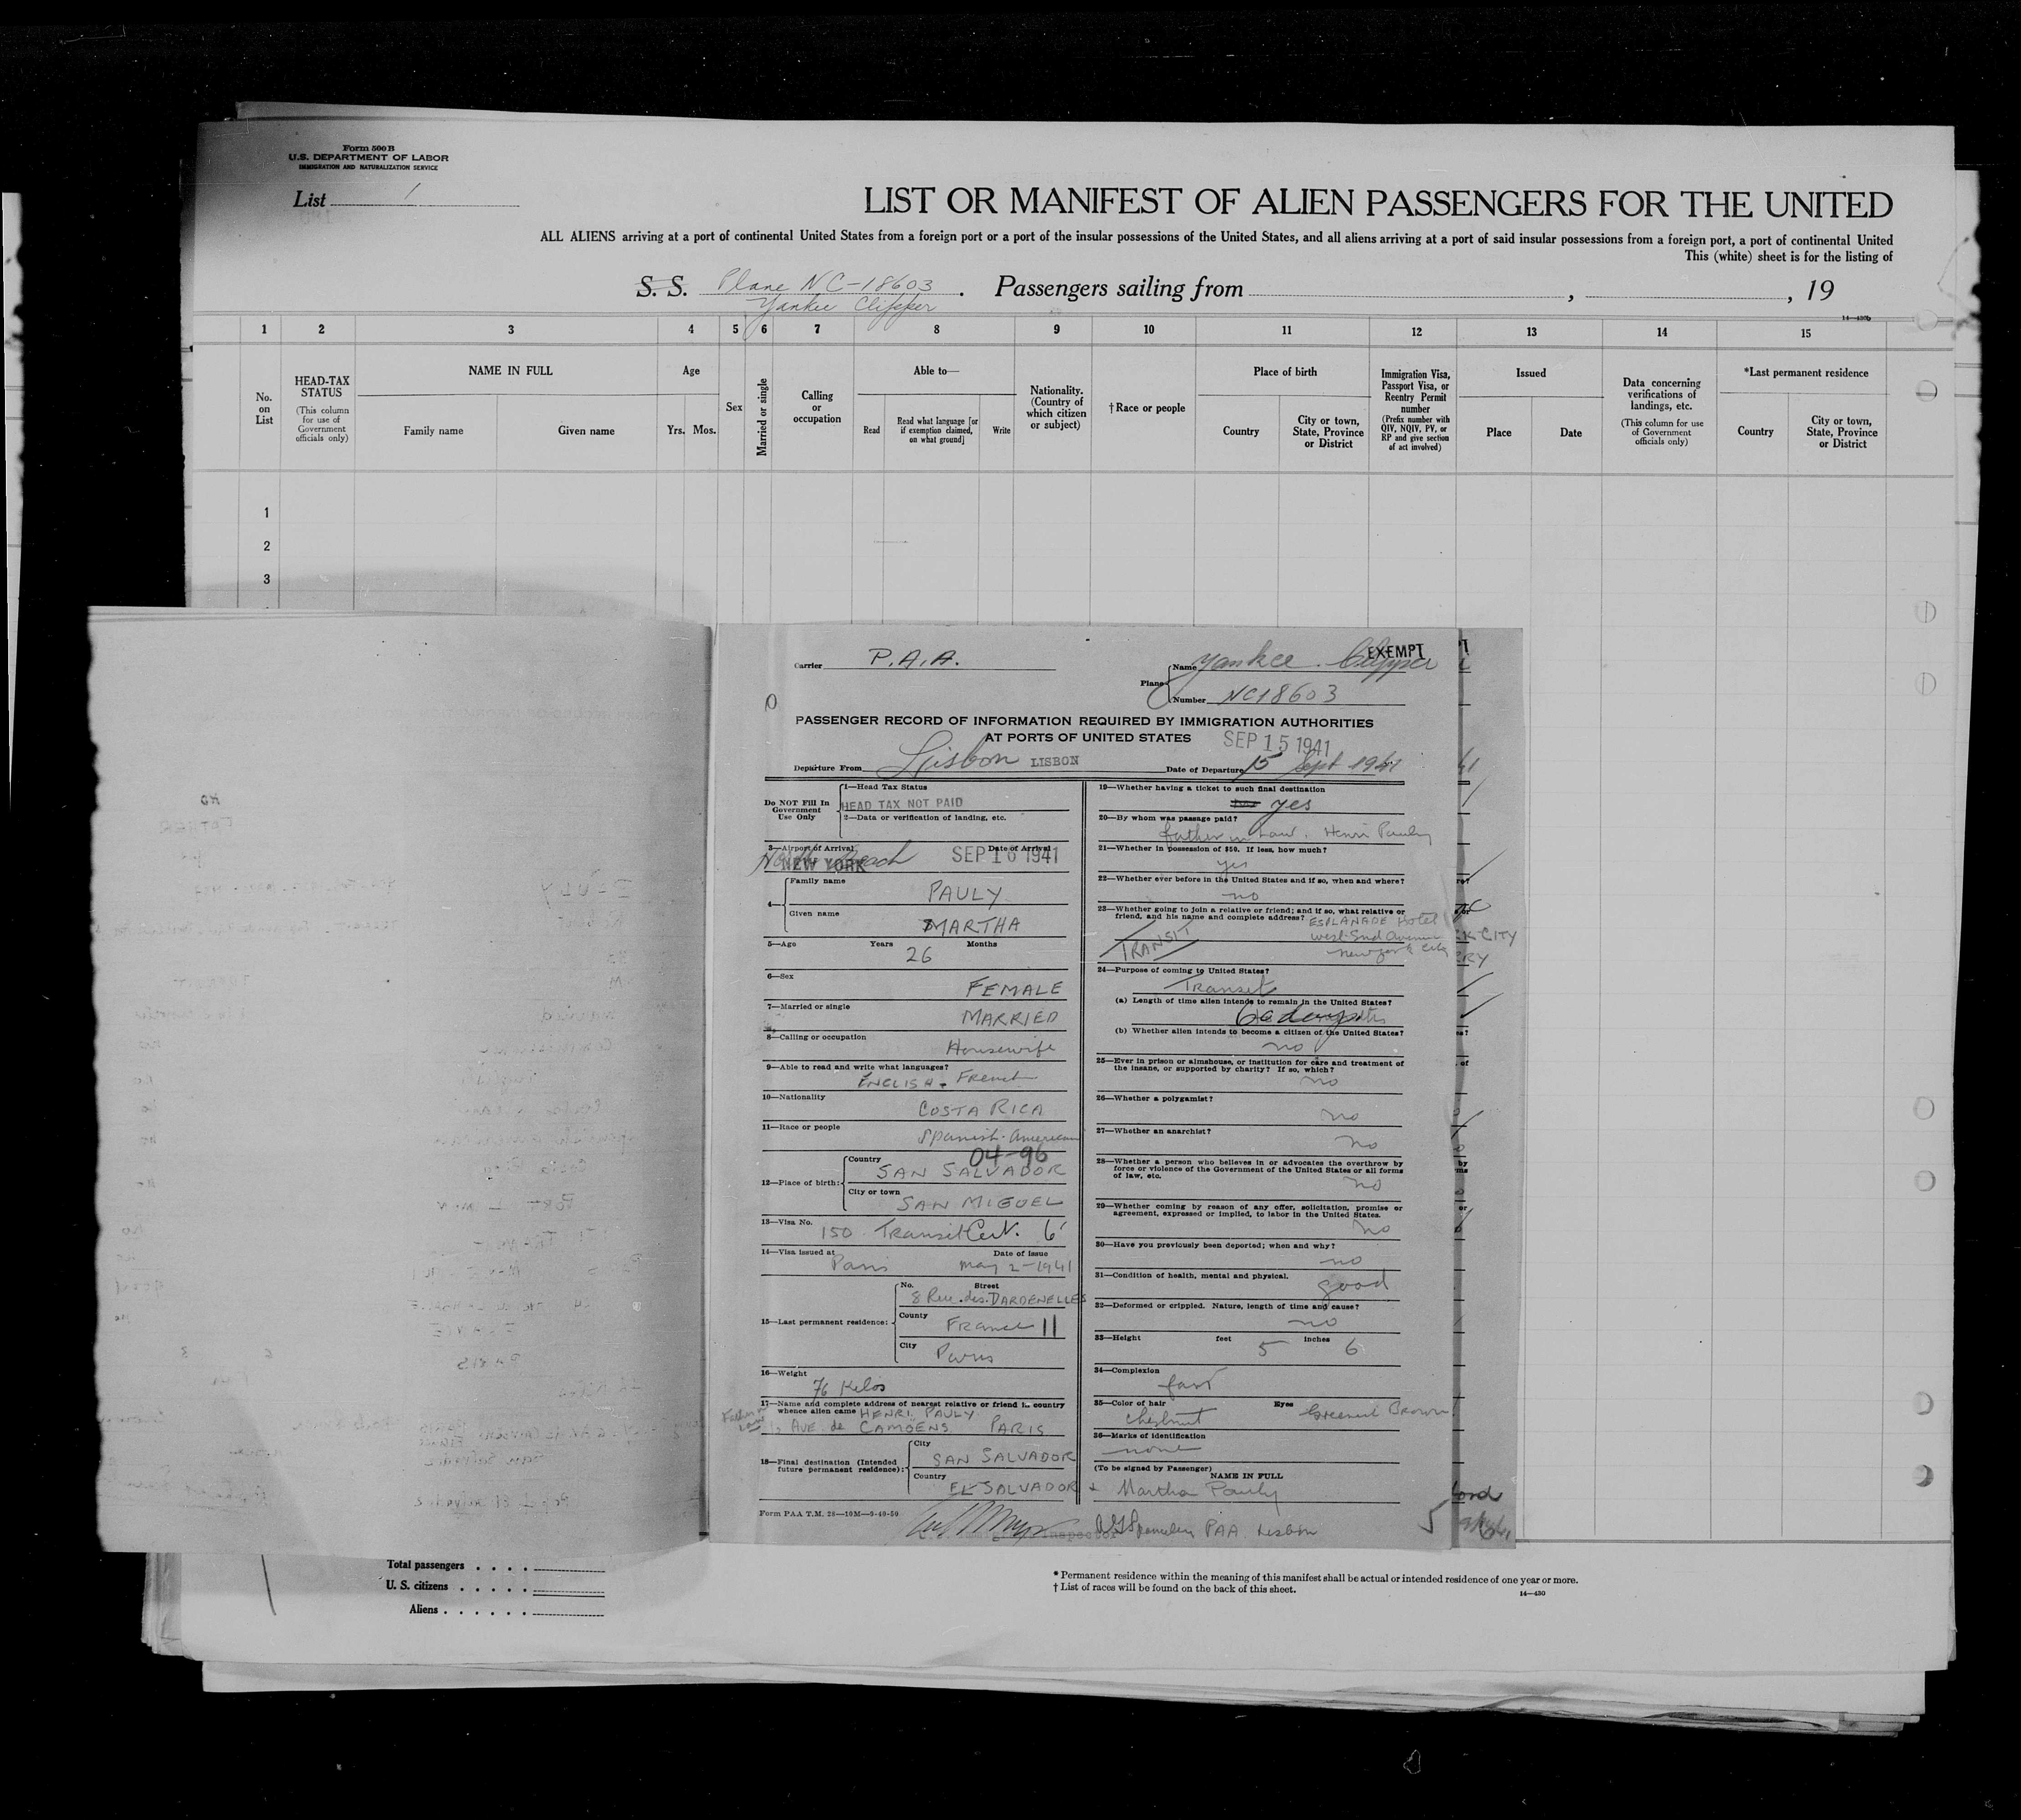 Form 500 B
U.S. DEPARTMENT OF LABOR
IMMIGRATION AND NATURALIZATION SERVICE
List 1
LIST OR MANIFEST OF ALIEN PASSENGERS FOR THE UNITED
ALL ALIENS arriving at a port of continental United States from a foreign port or a port of the insular possessions of the United States, and all aliens arriving at a port of said insular possessions from a foreign port, a port of continental United
This (white) sheet is for the listing of
S. S. Plane NC-18603 . Passengers sailing from , , 19
Yankee Clipper
14—430b
1 2 3 4 5 6 7 8 9 10 11 12 13 14 15
No. on List
HEAD-TAX STATUS
(This column for use of Government officials only)
NAME IN FULL
Family name
Given name
Age
Yrs. Mos.
Sex
Married or single
Calling or occupation
Able to—
Read
Read what language [or if exemption claimed, on what ground]
Write
Nationality. (Country of which citizen or subject)
†Race or people
Place of birth
Country
City or town, State, Province or District
Immigration Visa, Passport Visa, or Reentry Permit number
(Prefix number with QIV, NQIV, PV, or RP and give section of act involved)
Issued
Place
Date
Data concerning verifications of landings, etc.
(This column for use of Government officials only)
*Last permanent residence
Country
City or town, State, Province or District
1
2
3
Carrier P.A.A.
EXEMPT
Plane
Name Yankee Clipper
Number NC18603
PASSENGER RECORD OF INFORMATION REQUIRED BY IMMIGRATION AUTHORITIES
AT PORTS OF UNITED STATES
SEP 15 1941
Departure From Lisbon LISBON
Date of Departure 15 Sept 1941
Do NOT Fill In
Government
Use Only
1—Head Tax Status
HEAD TAX NOT PAID
2—Data or verification of landing, etc.
3—Airport of Arrival Date of Arrival
NEW YORK SEP 16 1941
4—
Family name
PAULY
Given name
MARTHA
5—Age Years Months
26
6—Sex
FEMALE
7—Married or single
MARRIED
8—Calling or occupation
Housewife
9—Able to read and write what languages?
ENGLISH - French
10—Nationality
COSTA RICA
11—Race or people
Spanish-American
04-96
12—Place of birth:
Country
SAN SALVADOR
City or town
SAN MIGUEL
13—Visa No.
150 Transit Cert. 6
14—Visa issued at Date of issue
Paris May 2-1941
15—Last permanent residence:
No. Street
8 Rue des DARDENELLES
County
France 11
City
Paris
16—Weight
76 Kilos
17—Name and complete address of nearest relative or friend in country
whence alien came HENRI PAULY
Father in Law
1, AVE. de CAMOENS PARIS
18—Final destination (Intended
future permanent residence):
City
SAN SALVADOR
Country
EL SALVADOR
Form PAA T.M. 28—10M—5-40-50
19—Whether having a ticket to such final destination
yes
20—By whom was passage paid?
father in Law. Henri Pauly
21—Whether in possession of $50. If less, how much?
yes
22—Whether ever before in the United States and if so, when and where?
no
23—Whether going to join a relative or friend; and if so, what relative or
friend, and his name and complete address?
ESPLANADE Hotel
West End Avenue
New York City
TRANSIT
24—Purpose of coming to United States?
Transit
(a) Length of time alien intends to remain in the United States?
60 days
(b) Whether alien intends to become a citizen of the United States?
no
25—Ever in prison or almshouse, or institution for care and treatment of
the insane, or supported by charity? If so, which?
no
26—Whether a polygamist?
no
27—Whether an anarchist?
no
28—Whether a person who believes in or advocates the overthrow by
force or violence of the Government of the United States or all forms
of law, etc.
no
29—Whether coming by reason of any offer, solicitation, promise or
agreement, expressed or implied, to labor in the United States.
no
30—Have you previously been deported; when and why?
no
31—Condition of health, mental and physical.
good
32—Deformed or crippled. Nature, length of time and cause?
no
33—Height feet inches
5 6
34—Complexion
fair
35—Color of hair Eyes
Chestnut Greenish Brown
36—Marks of identification
none
(To be signed by Passenger)
NAME IN FULL
Martha Pauly
PAA Lisbon
Total passengers . . . .
U. S. citizens . . . . .
Aliens . . . . . .
* Permanent residence within the meaning of this manifest shall be actual or intended residence of one year or more.
† List of races will be found on the back of this sheet.
14—430